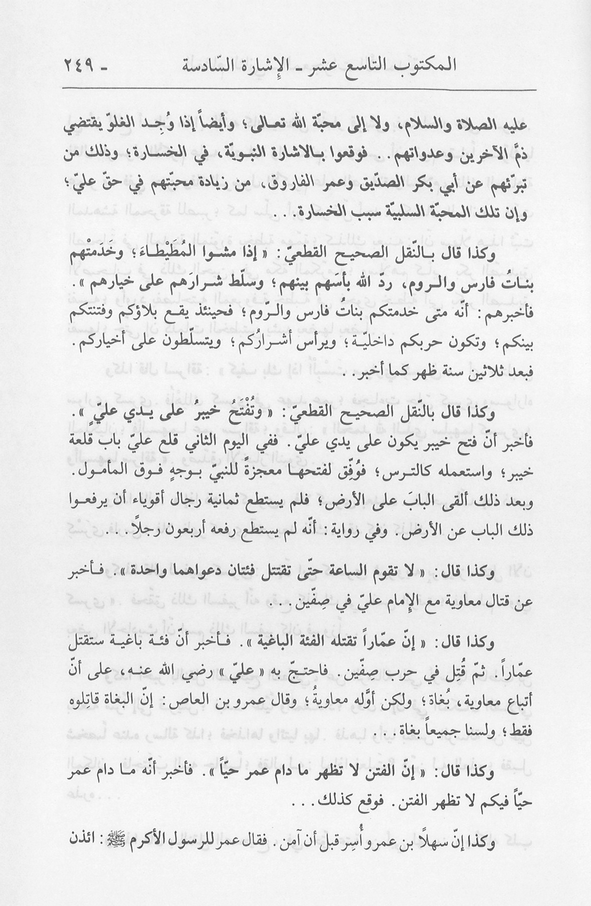 المكتوب التاسع عشر - الإشارة السّادسة - ٢٤٩
عليه الصلاة والسلام، ولا إلى محبّة الله تعالى؛ وأيضاً إذا وُجِد الغلوّ يقتضي
ذمَّ الآخرين وعدواتهم.. فوقعوا بالاشارة النبويّة، في الخسارة؛ وذلك من
تبرّئهم عن أبي بكر الصدّيق وعمر الفاروق، من زيادة محبّتهم في حقّ عليّ؛
وإن تلك المحبّة السلبيّة سبب الخسارة...
وكذا قال بالنّقل الصحيح القطعيّ: « إذا مشوا المُطَيْطاءَ؛ وخَدَمَتْهم
بناتُ فارس والروم، ردّ الله بأسَهم بينهم؛ وسلّط شرارَهم على خيارهم ».
فأخبرهم: أنّه متى خدمتكم بناتُ فارس والرّوم؛ فحينئذ يقع بلاؤكم وفتنتكم
بينكم؛ وتكون حربكم داخليّة؛ ويرأس أشرارُكم؛ ويتسلّطون على أخياركم.
فبعد ثلاثين سنة ظهر كما أخبر..
وكذا قال بالنّقل الصحيح القطعيّ: « وتُفْتَحُ خيبرُ على يدي عليٍّ ».
فأخبر أنّ فتح خيبر يكون على يدي عليّ. ففي اليوم الثاني قلع عليّ باب قلعة
خيبر؛ واستعمله كالترس؛ فوُفِّق لفتحها معجزةً للنبيّ بوجهٍ فوق المأمول.
وبعد ذلك ألقى البابَ على الأرض؛ فلم يستطع ثمانية رجال أقوياء أن يرفعوا
ذلك الباب عن الأرض. وفي رواية: أنّه لم يستطع رفعه أربعون رجلاً...
وكذا قال: « لا تقوم الساعة حتّى تقتتل فئتان دعواهما واحدة ». فأخبر
عن قتال معاوية مع الإمام عليّ في صفّين...
وكذا قال: « إنّ عمّاراً تقتله الفئة الباغية ». فأخبر أنّ فئة باغية ستقتل
عمّاراً. ثمّ قُتِل في حرب صفّين. فاحتجّ به « عليّ » رضي الله عنه، على أنّ
أتباع معاوية، بُغاة؛ ولكن أوّله معاويةُ؛ وقال عمرو بن العاص: إنّ البغاة قاتِلوه
فقط؛ ولسنا جميعاً بغاة...
وكذا قال: « إنّ الفتن لا تظهر ما دام عمر حيّاً ». فأخبر أنّه ما دام عمر
حيّاً فيكم لا تظهر الفتن. فوقع كذلك...
وكذا إنّ سهلاً بن عمرو أُسِر قبل أن آمن. فقال عمر للرسول الأكرم ﷺ: ائذن